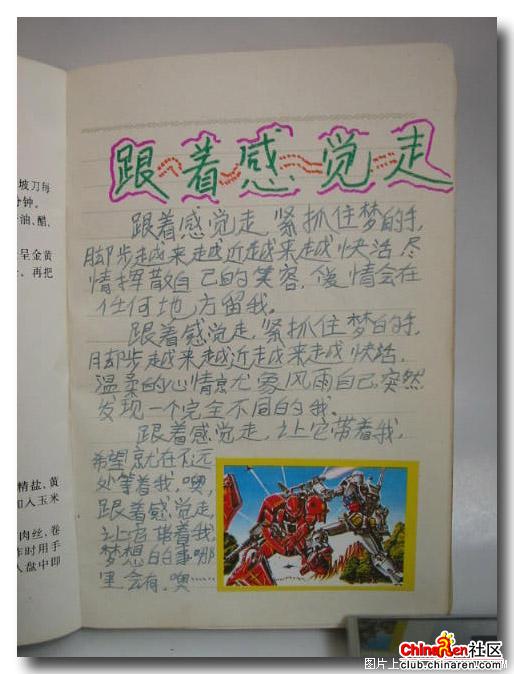 跟着感觉走
跟着感觉走,紧抓住梦的手,
脚步越来越近越来越快活,尽
情挥散自己的笑容,傻情会在
任何地方留我。
跟着感觉走,紧抓住梦的手,
脚步越来越近越来越快活,
温柔的心情尤象风雨自己,突然
发现一个完全不同的我。
跟着感觉走,让它带着我,
希望就在不远
处等着我,噢,
跟着感觉走,
让它带着我,
梦想的的事哪
里会有,噢
坡刀每
分钟。
油、醋、
呈金黄
、再把
精盐、黄
加入玉米
肉丝,卷
炸时用手
入盘中即
ChinaRen社区
club.chinaren.com
图片上